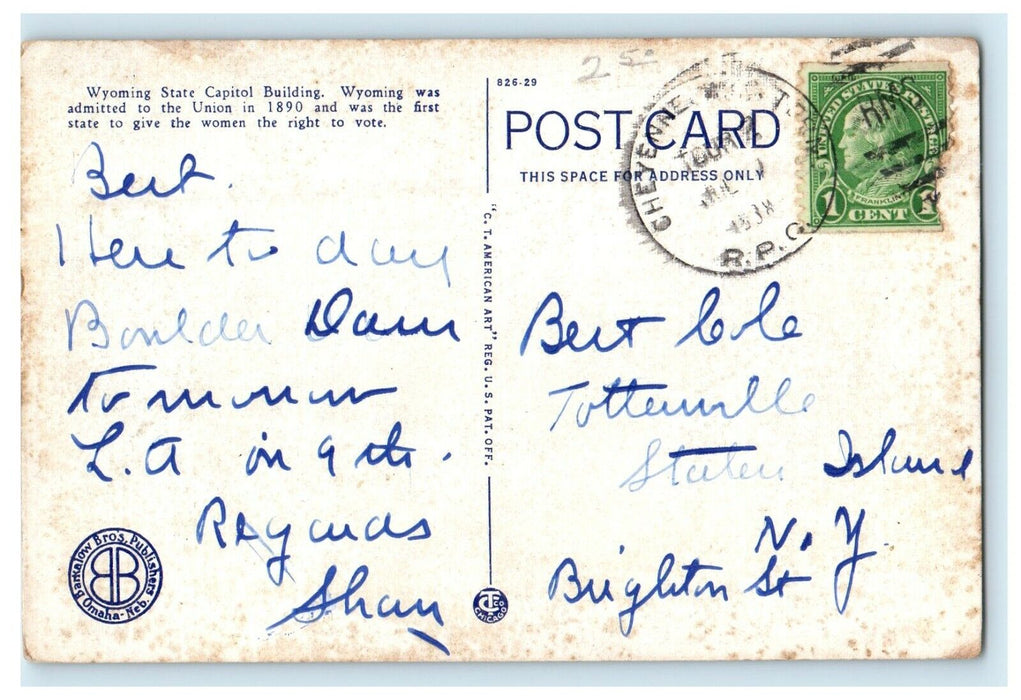 Wyoming State Capitol Building. Wyoming was
admitted to the Union in 1890 and was the first
state to give the women the right to vote.
Bert.
Here to day
Boulder Dam
tomorrow
L.A on 9 th.
Regards
Shan
Barkalow Bros. Publishers
Omaha-Neb.
BB
"C.T. AMERICAN ART" REG. U.S. PAT. OFF.
CT CO
CHICAGO
826-29
POST CARD
THIS SPACE FOR ADDRESS ONLY
25
CHEYENNE, W
TOUR
JUL
1938
R.P.O.
UNITED STATES POSTAGE
FRANKLIN
1 CENT 1
Bert Cole
Tottenville
Staten Island
N.Y.
Brighton St